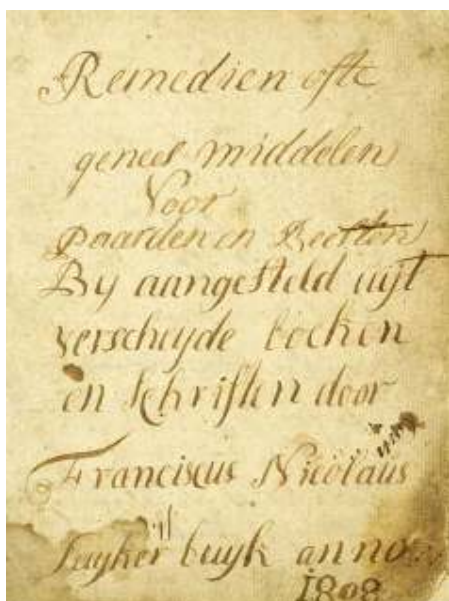 Remedien ofte
genees middelen
Voor
paarden en Beesten
By aangesteld uijt
verscheyde boeken
en schriften door
Franciscus Nicolaus
buyk anno
1808